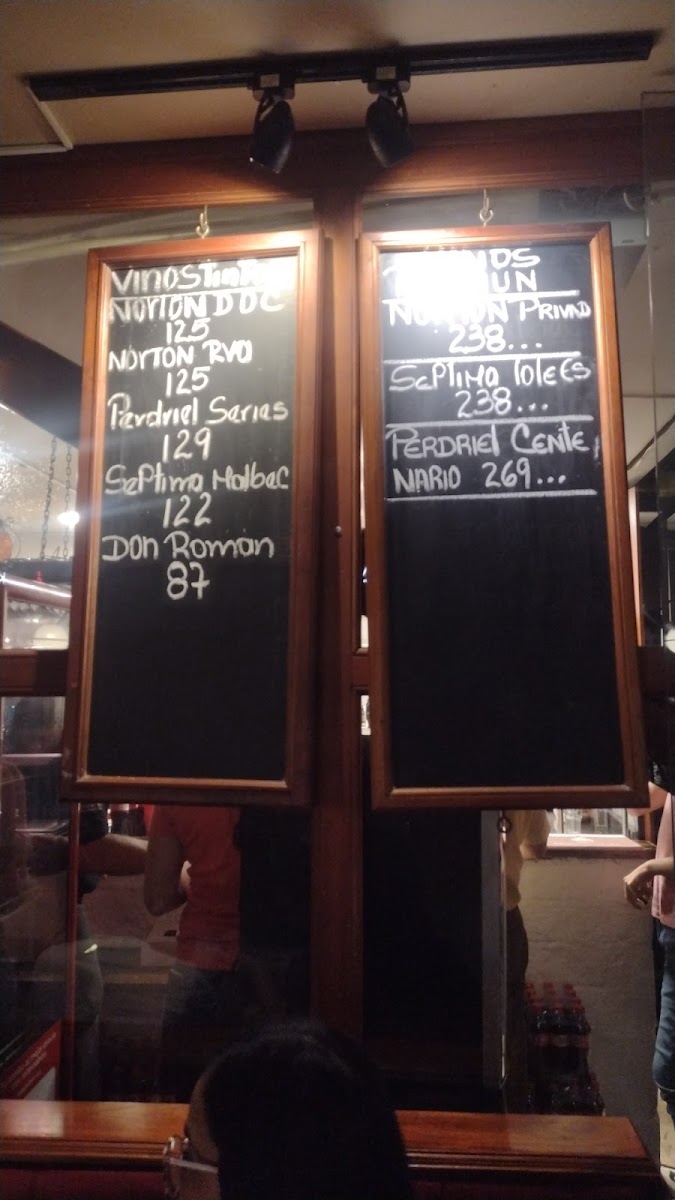 VINOS Tintos
NORTON DOC
125
NORTON RVA
125
Perdriel Series
129
SePtima Malbec
122
Don Roman
87
NORTON PRIVAD
238...
SePTIMA
238...
PERDRIEL CENTE
NARIO 269...